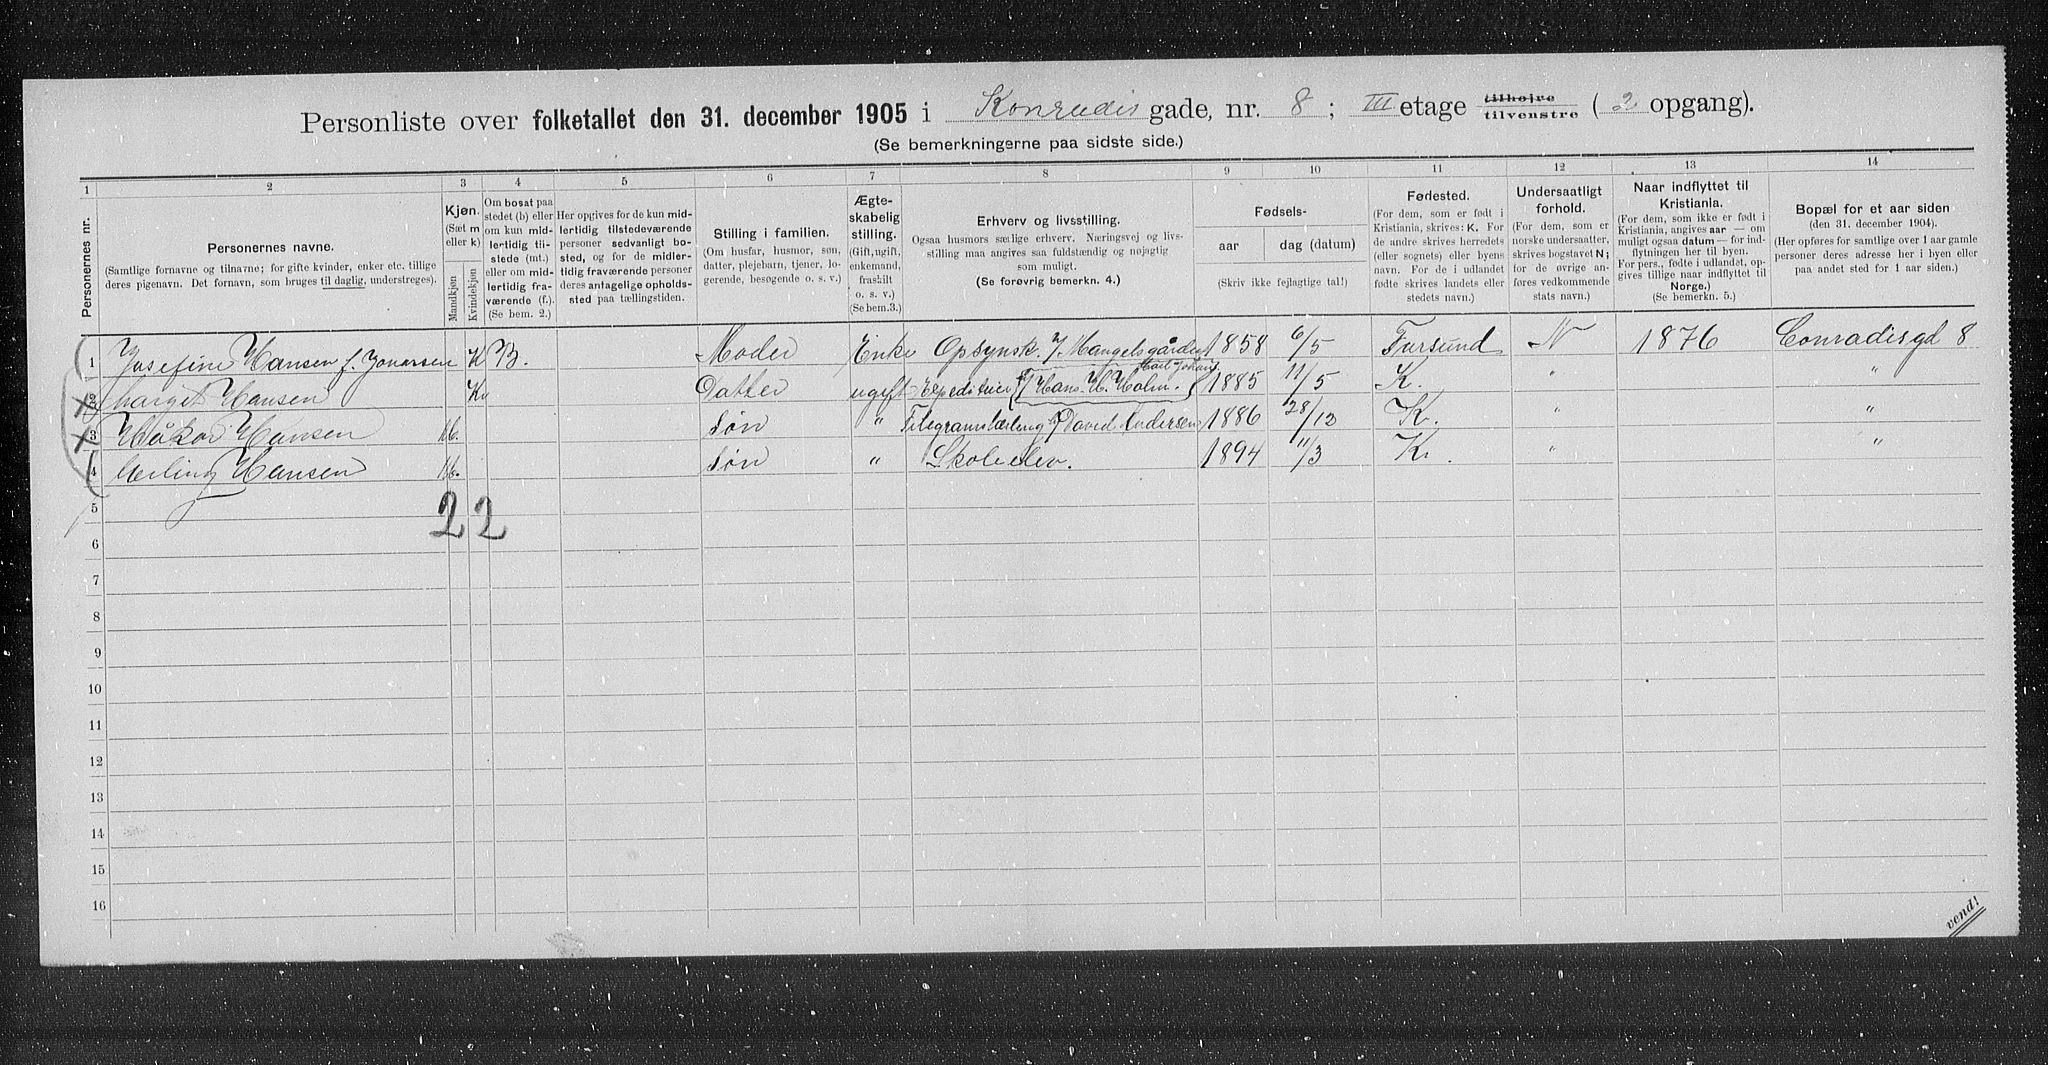 Personliste over folketallet den 31. december 1905 i Konradis gade, nr. 8; III etage tilhøjre tilvenstre (2 opgang).
(Se bemerkningerne paa sidste side.)
1 2 3 4 5 6 7 8 9 10 11 12 13 14
Personernes nr.
Personernes navne.
(Samtlige fornavne og tilnavne; for gifte kvinder, enker etc. tillige
deres pigenavn. Det fornavn, som bruges til daglig, understreges).
Kjøn.
(Sæt m
eller k)
Mandkjøn
Kvindekjøn
Om bosat paa
stedet (b) eller
om kun mid-
lertidig til-
stede (mt.)
eller om mid-
lertidig fra-
værende (f.).
(Se bem. 2.)
Her opgives for de kun mid-
lertidig tilstedeværende
personer sedvanligt bo-
sted, og for de midler-
tidig fraværende personer
deres antagelige opholds-
sted paa tællingstiden.
Stilling i familien.
(Om husfar, husmor, søn,
datter, plejebarn, tjener, lo-
gerende, besøgende o. s. v.)
Ægte-
skabelig
stilling.
(Gift, ugift,
enkemand,
fraskilt
o. s. v.)
(Se bem.3.)
Erhverv og livsstilling.
Ogsaa husmors særlige erhverv. Næringsvej og livs-
stilling maa angives saa fuldstændig og nøjagtig
som muligt.
(Se forøvrig bemerkn. 4.)
Fødsels-
aar
dag (datum)
(Skriv ikke fejlagtige tal!)
Fødested.
(For dem, som er født i
Kristiania, skrives: K. For
de andre skrives herredets
(eller sognets) eller byens
navn. For de i udlandet
fødte skrives landets eller
stedets navn.)
Undersaatligt
forhold.
(For dem, som er
norske undersaatter,
skrives bogstavet N;
for de øvrige an-
føres vedkommende
stats navn.)
Naar indflyttet til
Kristiania.
(For dem, som ikke er født i
Kristiania, angives aar — om
muligt ogsaa datum — for ind-
flytningen her til byen.
For pers., fødte i udlandet, op-
gives tillige naar indflyttet til
Norge.)
(Se bemerkn. 5.)
Bopæl for et aar siden
(den 31. december 1904).
(Her opføres for samtlige over 1 aar gamle
personer deres adresse her i byen eller
paa andet sted for 1 aar siden.)
1 Josefine Hansen f. Jonassen K B. Moder Enke Opsynsk. / Mangelsgården 1858 6/5 Farsund N 1876 Conradisgd 8
Karl Johan
2 Marget Hansen K Datter ugift Expeditrice / Hans H. Holm. 1885 11/5 K. " "
3 Håkon Hansen M. Søn " David Andersen 1886 28/12 K. " "
4 Erling Hansen M. Søn " Skoleelev. 1894 11/3 K. " "
2 2
5
6
7
8
9
10
11
12
13
14
15
16
vend!